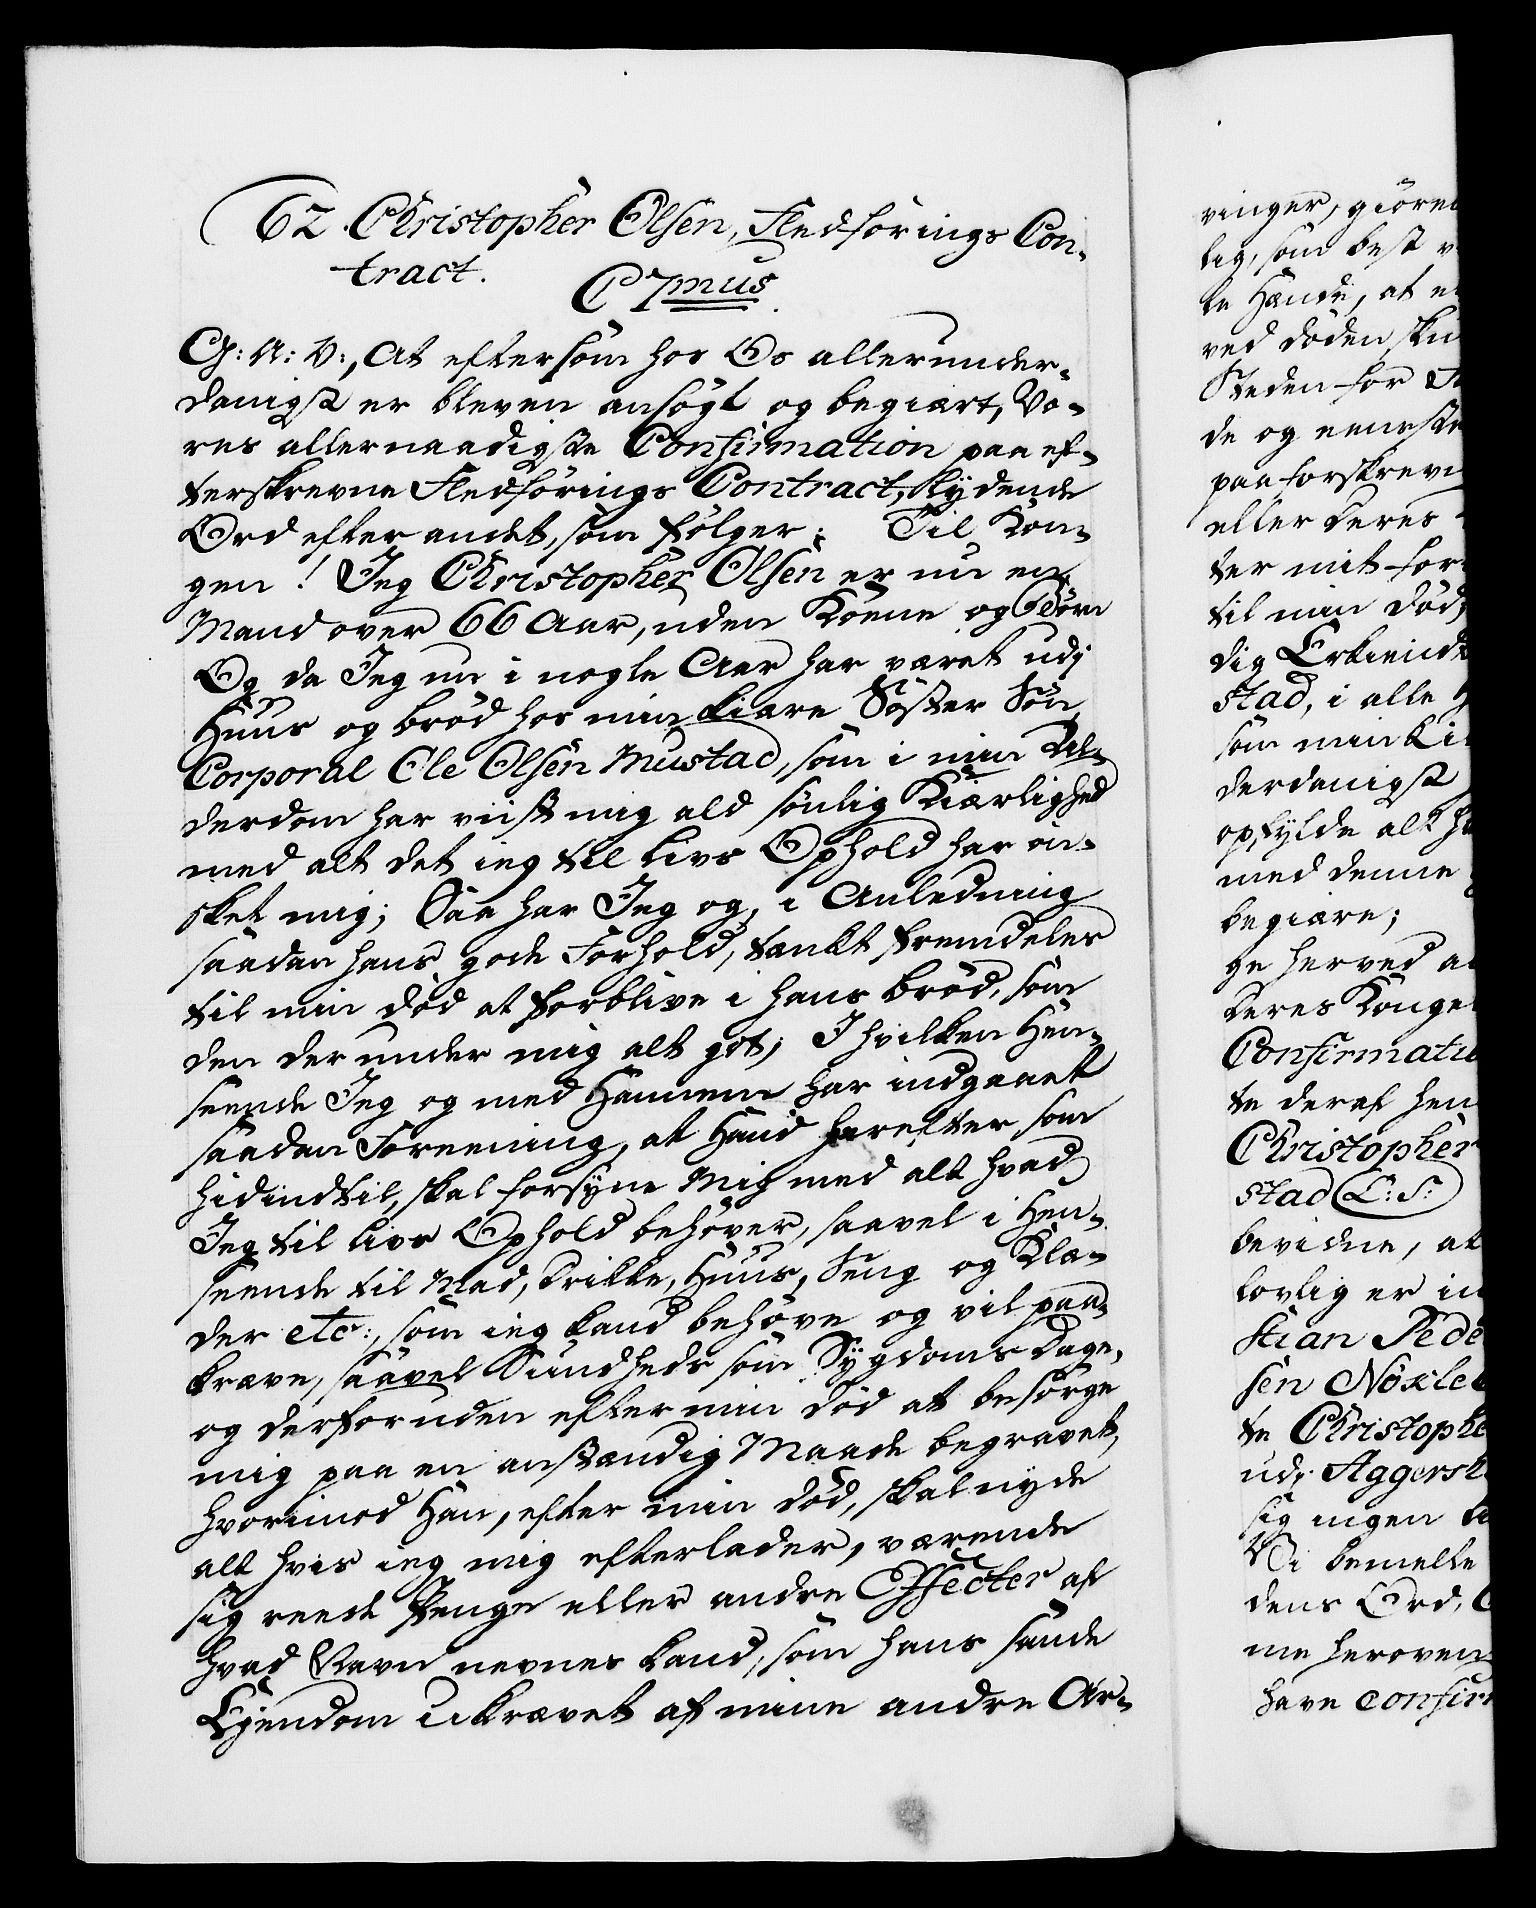 62. Christopher Olsen, Fledførings Con-
tract.
C 7mus.
G: A: V:, At eftersom hos Os allerunder-
danigst er bleven ansøgt og begiært, Vo-
res allernaadigste Confirmation paa ef-
terskrevne Fledførings Contract, lydende
Ord efter andet, som følger: Til Kon-
gen! Jeg Christopher Olsen er nu en
Mand over 66 Aar, uden Kone og Børn
Og da Jeg nu i nogle Aar har været udj
Huus og brød hos min kiære Søster Søn
Corporal Ole Olsen Mustad, som i min Al-
derdom har viist mig ald sønlig Kiærlighed
med alt det ieg til livs Ophold har øn-
sket mig; Saa har Jeg og, i Anledning
saadan hans gode Forhold, tænkt fremdeles
til min død at forblive i hans brød, som
den der under mig alt got; I hvilken Hen-
seende Jeg og med Hannem har indgaaet
saadan Foreening, at Hand herefter, som
hidindtil, skal forsyne Mig med alt hvad
Jeg til livs Ophold behøver, saavel i Hen-
seende til Mad, Drikke, Huus, Seng og Klæ-
der etc:, som ieg kand behøve og vil paa-
kræve, saavel Sundheds som Sygdoms Dage,
og derforuden efter min død at besørge
mig paa en anstændig Maade begravet,
hvorimod Han, efter min død, skal nyde
alt hvis ieg mig efterlader, værende
sig reede Penge eller andre Effecter af
hvad Navn nevnes kand, som hans sande
Ejendom ukrævet af mine andre Ar-
vinger, giøre
lig, som best
te Hænde, at
ved døden
Steden for
de og eeneste
paa forskrevn
eller deres
ter mit for
til min død,
dig Erkiend
stad, i alle
som min
derdanigst
opfylde alt
med denne
begiære;
ge herved
deres Konge
Confirmatio
te deraf hen
Christopher
stad (L: S:)
bevidne, at
lovlig er in
stian Pede
sen Nøxle
te Christophe
udj Aggersh
sig ingen
Vi bemelte
dens Ord,
me heroven
have confir